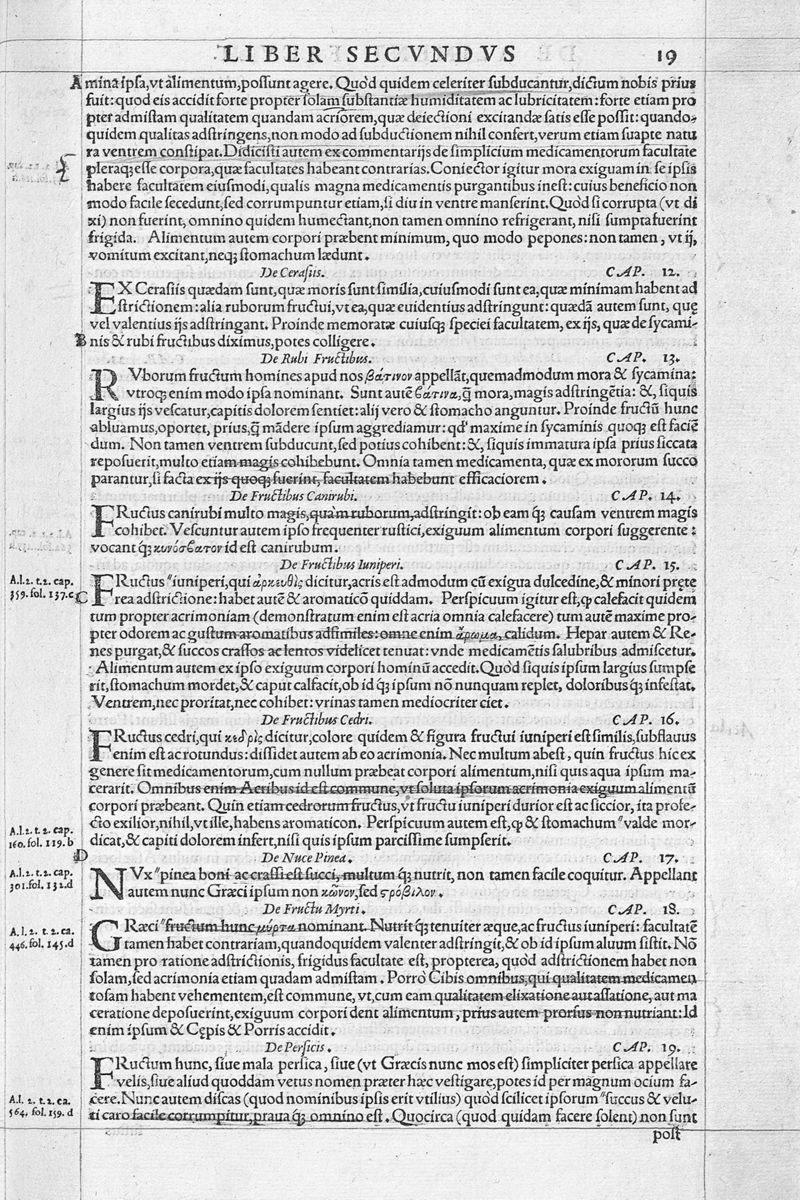 LIBER SECVNDVS 19
A mina ipſa, vt alimentum, poſſunt agere. Quòd quidem celeriter ſubducantur, dictum nobis prius
fuit: quod eis accidit forte propter ſolam ſubſtantiæ humiditatem ac lubricitatem: forte etiam pro
pter admiſtam qualitatem quandam acriorem, quæ deiectioni excitandæ ſatis eſſe poſſit: quando-
quidem qualitas adſtringens, non modo ad ſubductionem nihil confert, verum etiam ſuapte natu
ra ventrem conſtipat. Didiciſti autem ex commentarijs de ſimplicium medicamentorum facultate
pleraq; eſſe corpora, quæ facultates habeant contrarias. Coniector igitur mora exiguam in ſe ipſis
habere facultatem eiuſmodi, qualis magna medicamentis purgantibus ineſt: cuius beneficio non
modo facile ſecedunt, ſed corrumpuntur etiam, ſi diu in ventre manſerint. Quòd ſi corrupta (vt di
xi) non fuerint, omnino quidem humectant, non tamen omnino refrigerant, niſi ſumpta fuerint
frigida. Alimentum autem corpori præbent minimum, quo modo pepones: non tamen, vt ij,
vomitum excitant, neq; ſtomachum lædunt.
De Ceraſiis. CAP. 12.
EX Ceraſiis quædam ſunt, quæ moris ſunt ſimilia, cuiuſmodi ſunt ea, quæ minimam habent ad
ſtrictionem: alia ruborum fructui, vt ea, quæ euidentius adſtringunt: quædã autem ſunt, quę
vel valentius ijs adſtringant. Proinde memoratæ cuiuſq; ſpeciei facultatem, ex ijs, quæ de ſycami-
B nis & rubi fructibus diximus, potes colligere.
De Rubi Fructibus. CAP. 13.
RVborum fructum homines apud nos βάτινον appellãt, quemadmodum mora & ſycamina:
vtroq; enim modo ipſa nominant. Sunt autẽ βάτινα, q̃ mora, magis adſtringẽtia: &, ſiquis
largius ijs veſcatur, capitis dolorem ſentiet: alij vero & ſtomacho anguntur. Proinde fructũ hunc
abluamus, oportet, prius, q̃ mãdere ipſum aggrediamur: qd' maxime in ſycaminis quoq; eſt faciẽ
dum. Non tamen ventrem ſubducunt, ſed potius cohibent: &, ſiquis immatura ipſa prius ſiccata
repoſuerit, multo etiam magis cohibebunt. Omnia tamen medicamenta, quæ ex mororum ſucco
parantur, ſi facta ex ijs quoq; fuerint, facultatem habebunt efficaciorem.
De Fructibus Canirubi. CAP. 14.
FRuctus canirubi multo magis, quàm ruborum, adſtringit: ob eam q́; cauſam ventrem magis
cohibet. Veſcuntur autem ipſo frequenter ruſtici, exiguum alimentum corpori ſuggerente:
vocant q́; κυνόσβατον id eſt canirubum.
De Fructibus Iuniperi. CAP. 15.
A.l.2. t.2. cap.
359. fol. 137. c
C FRuctus "iuniperi, qui ἀρκευθὶς dicitur, acris eſt admodum cũ exigua dulcedine, & minori pręte
rea adſtrictione: habet autẽ & aromaticõ quiddam. Perſpicuum igitur eſt, ꝙ calefacit quidem
tum propter acrimoniam (demonſtratum enim eſt acria omnia calefacere) tum autẽ maxime pro-
pter odorem ac guſtum aromatibus adſimiles: omne enim ἄρωμα, calidum. Hepar autem & Re-
nes purgat, & ſuccos craſſos ac lentos videlicet tenuat: vnde medicamẽtis ſalubribus admiſcetur.
Alimentum autem ex ipſo exiguum corpori hominũ accedit. Quòd ſiquis ipſum largius ſumpſe
rit, ſtomachum mordet, & caput calfacit, ob id q́; ipſum nõ nunquam replet, doloribus q́; infeſtat.
Ventrem, nec proritat, nec cohibet: vrinas tamen mediocriter ciet.
De Fructibus Cedri. CAP. 16.
FRuctus cedri, qui κεδρὶς dicitur, colore quidem & figura fructui iuniperi eſt ſimilis, ſubflauus
enim eſt ac rotundus: diſſidet autem ab eo acrimonia. Nec multum abeſt, quin fructus hic ex
genere ſit medicamentorum, cum nullum præbeat corpori alimentum, niſi quis aqua ipſum ma-
cerarit. Omnibus enim Acribus id eſt commune, vt ſoluta ipſorum acrimonia exiguum alimentũ
corpori præbeant. Quin etiam cedrorum fructus, vt fructu iuniperi durior eſt ac ſiccior, ita profe-
A.l.2. t.2. cap.
160. fol. 119. b
cto exilior, nihil, vt ille, habens aromaticon. Perſpicuum autem eſt, ꝙ & ſtomachum "valde mor-
dicat, & capiti dolorem infert, niſi quis ipſum parciſſime ſumpſerit.
D De Nuce Pinea. CAP. 17.
A.l.2. t.2. cap.
301. fol. 132. d
NVx "pinea boni ac craſſi eſt ſucci, multum q́; nutrit, non tamen facile coquitur. Appellant
autem nunc Græci ipſum non κῶνον, ſed ςρόβιλον.
De Fructu Myrti. CAP. 18.
A.l. 2. t.2. ca.
446. fol. 145. d
GRæci "fructum hunc μύρτα nominant. Nutrit q́; tenuiter æque, ac fructus iuniperi: facultatẽ
tamen habet contrariam, quandoquidem valenter adſtringit, & ob id ipſum aluum ſiſtit. Nõ
tamen pro ratione adſtrictionis, frigidus facultate eſt, propterea, quòd adſtrictionem habet non
ſolam, ſed acrimonia etiam quadam admiſtam. Porrò Cibis omnibus, qui qualitatem medicamen
toſam habent vehementem, eſt commune, vt, cum eam qualitatem elixatione aut aſſatione, aut ma
ceratione depoſuerint, exiguum corpori dent alimentum, prius autem prorſus non nutriant: Id
enim ipſum & Cępis & Porris accidit.
De Perſicis. CAP. 19.
FRuctum hunc, ſiue mala perſica, ſiue (vt Græcis nunc mos eſt) ſimpliciter perſica appellare
velis, ſiue aliud quoddam vetus nomen præter hæc veſtigare, potes id per magnum ocium fa-
A.l. 2. t. 2. ca.
564. fol. 159. d
cere. Nunc autem diſcas (quod nominibus ipſis erit vtilius) quòd ſcilicet ipſorum "ſuccus & velu-
ti caro facile corrumpitur, praua q́; omnino eſt. Quocirca (quod quidam facere ſolent) non ſunt
poſt